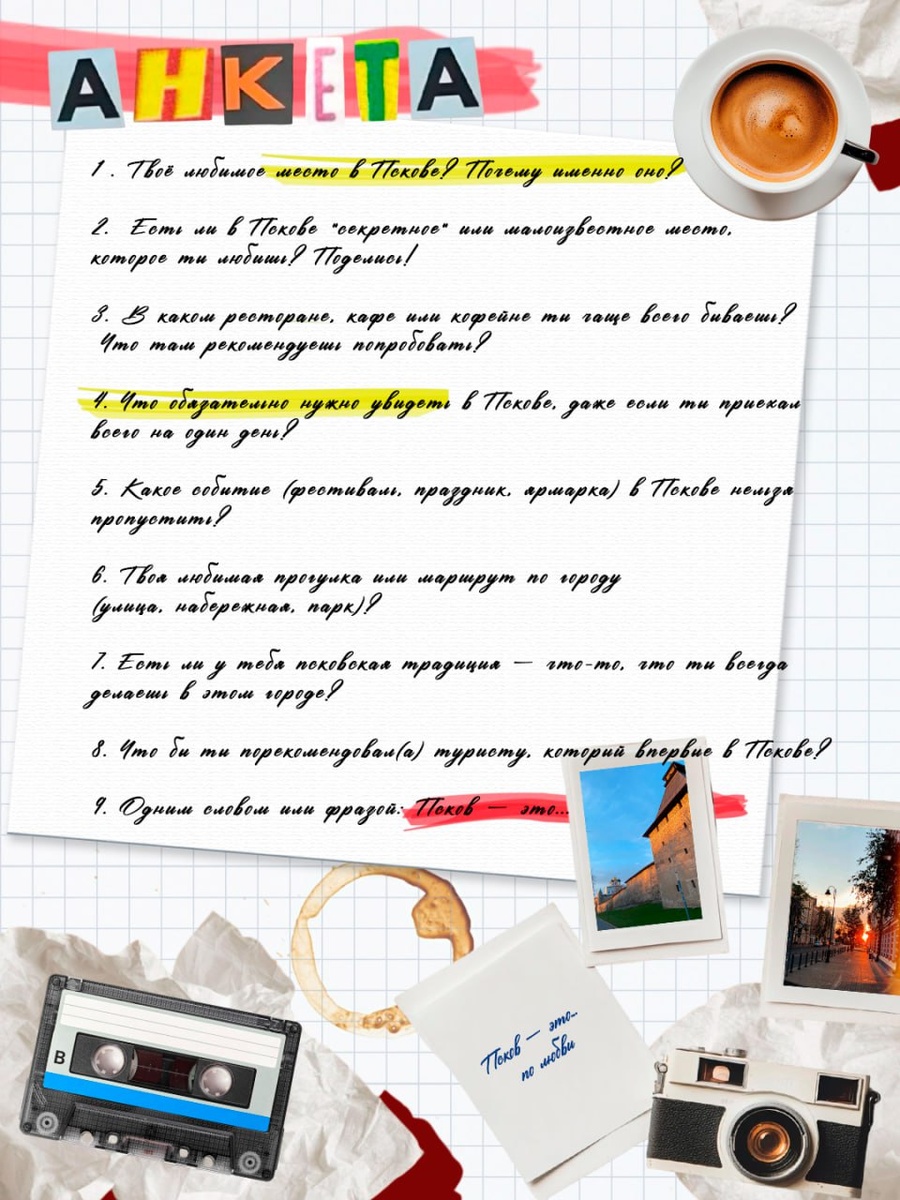 АНКЕТА
1. Твоё любимое место в Пскове? Почему именно оно?
2. Есть ли в Пскове "секретное" или малоизвестное место,
которое ты любишь? Поделись!
3. В каком ресторане, кафе или кофейне ты чаще всего бываешь?
Что там рекомендуешь попробовать?
4. Что обязательно нужно увидеть в Пскове, даже если ты приехал
всего на один день?
5. Какое событие (фестиваль, праздник, ярмарка) в Пскове нельзя
пропустить?
6. Твоя любимая прогулка или маршрут по городу
(улица, набережная, парк)?
7. Есть ли у тебя псковская традиция — что-то, что ты всегда
делаешь в этом городе?
8. Что бы ты порекомендовал(а) туристу, который впервые в Пскове?
9. Одним словом или фразой: Псков — это...
Псков — это...
по любви
B